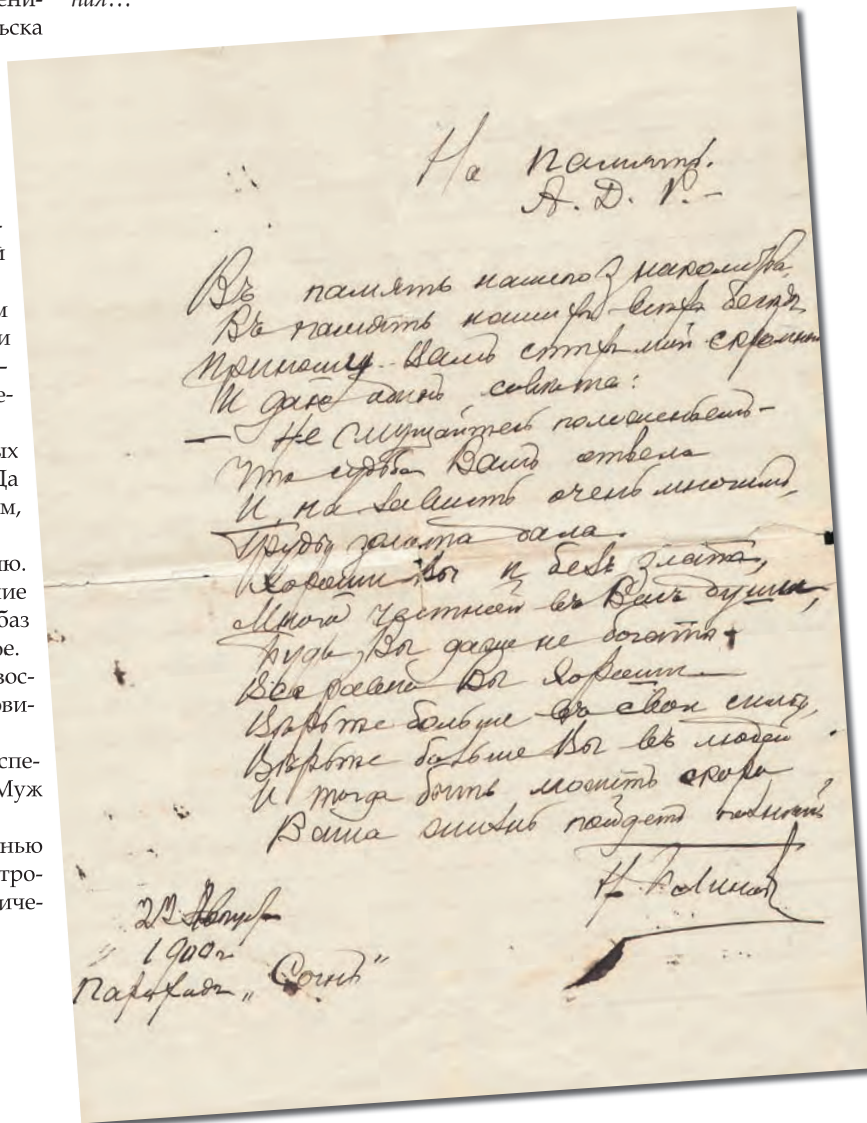 ени-
ния…
ьска
-
й
м
и
-
е-
ых
Да
м,
ию.
ние
баз
ое.
вос-
ови-
спе-
Муж
нью
тро-
иче-
На память.
А. Д. Р.-
Въ память нашего знакомства,
Въ память нашихъ всѣхъ бесѣдъ
Приношу Вамъ стихъ мой скромный
И даю одинъ совѣтъ:
— Не смущайтесь положеньемъ -
Что судьба Вамъ отвела
И, на зависть очень многимъ,
Груды золота дала.
Хороши Вы и безъ злата,
Много честной въ Васъ души,
Будь Вы даже не богаты -
Все равно Вы хороши -
Вѣрьте больше въ свои силы,
Вѣрьте больше Вы въ людей
И тогда быть можетъ скоро
Ваша жизнь пойдетъ
Н.
23
1900г
Пароходъ „